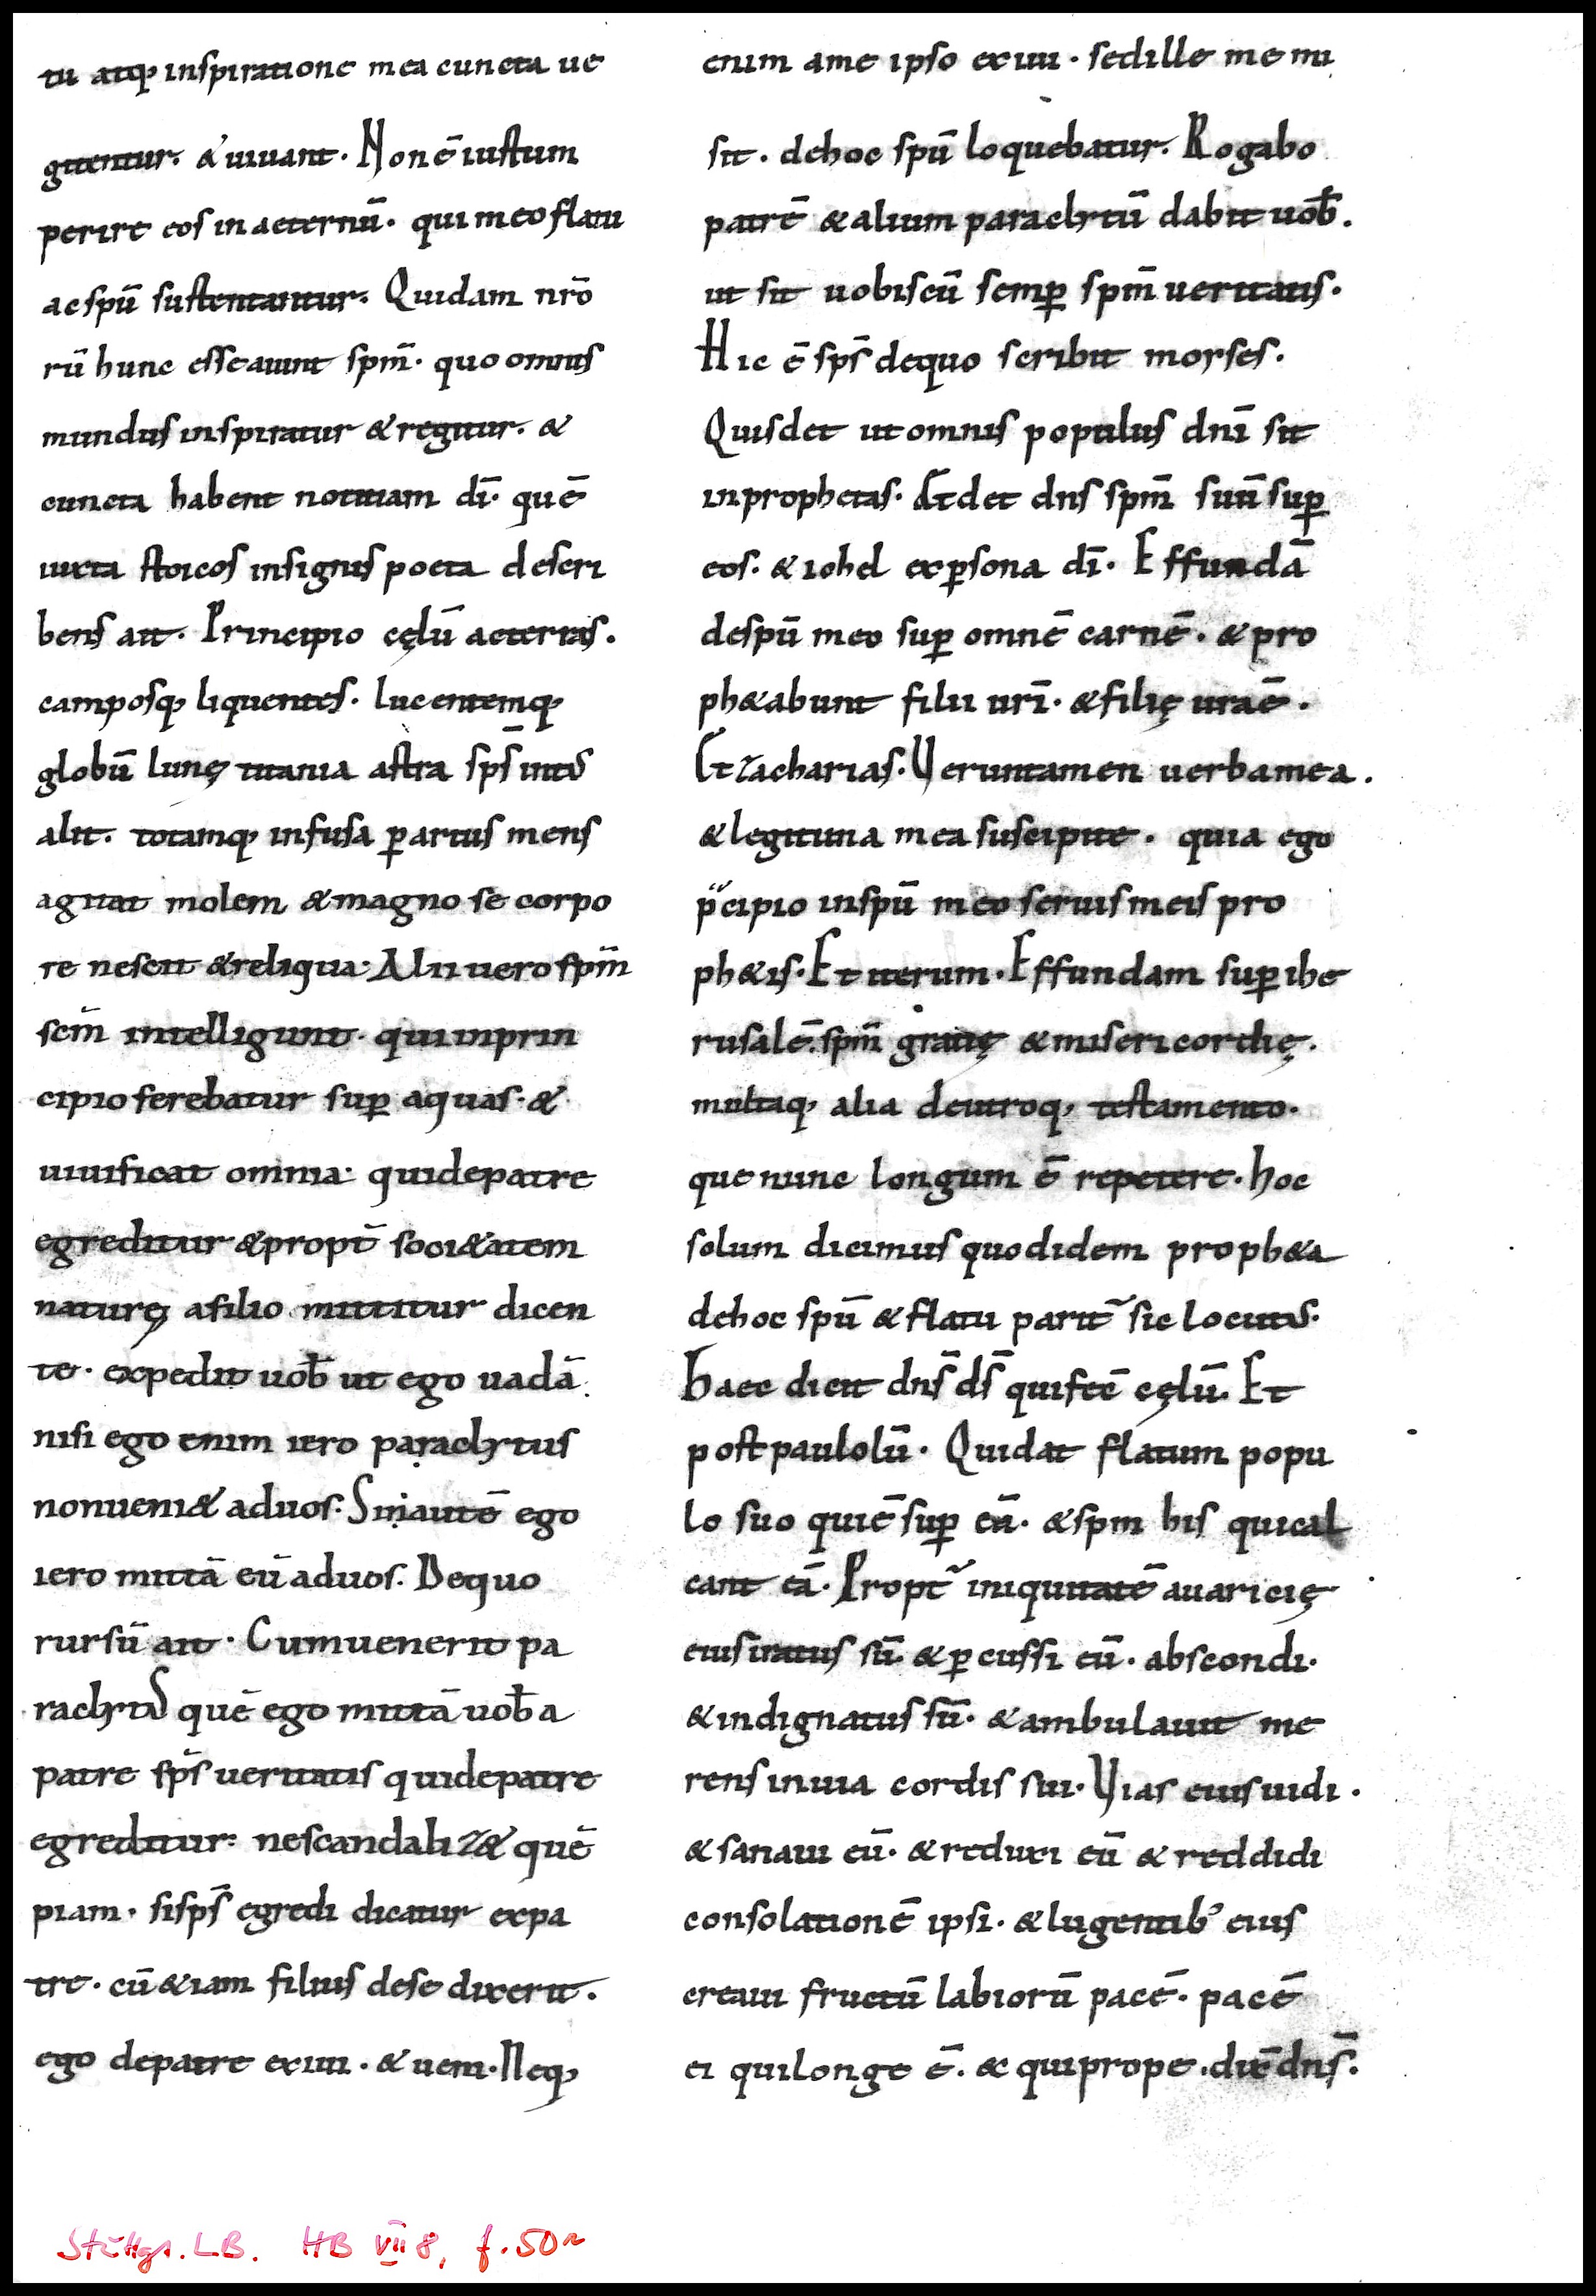 tu atq; inspiratione mea cuncta ue
gitentur. & uiuant. Non ē iustum
perire eos in aeternū. qui meo flatu
ac spū sustentantur. Quidam nrō
rū hunc esse aiunt spm̄. quo omnis
mundus inspiratur & regitur. &
cuncta habent notitiam dī. quē
iuxta stoicos insignis poeta descri
bens ait. Principio cęlū ac terras.
camposq; liquentes. lucentemq;
globū lunę titania astra sps̄ intus
alit. totamq; infusa ꝑ artus mens
agitat molem & magno se corpo
re nescit & reliqua. Alii uero spm̄
scm̄ intelligunt. qui in prin
cipio ferebatur suꝑ aquas. &
uiuificat omnia. qui de patre
egreditur & propt̄ soci&atem
naturę a filio mittitur dicen
te. expedit uob̄ ut ego uadā.
nisi ego enim iero paraclytus
non ueni& ad uos. Sin autē ego
iero mittā eū ad uos. De quo
rursū ait. Cum uenerit pa
raclytus quē ego mittā uob̄ a
patre sps̄ ueritatis qui de patre
egreditur. ne scandaliz& quē
piam. si sps̄ egredi dicatur ex pa
tre. cū &iam filius de se dixerit.
ego de patre exiui. & ueni. Neq;
enim a me ipso exiui. sed ille me mi
sit. de hoc spū loquebatur. Rogabo
patrē & alium paraclytū dabit uob̄.
ut sit uobiscū semꝑ spm̄ ueritatis.
Hic ē sps̄ de quo scribit moyses.
Quis det ut omnis populus dnī sit
in prophetas. Et det dns spm̄ suū suꝑ
eos. & iohel ex ꝑsona dī. Effundā
de spū meo suꝑ omnē carnē. & pro
ph&abunt filii urī. & filię uraē.
Et zacharias. Veruntamen uerba mea.
& legitima mea suscipite. quia ego
p̈cipio in spū meo seruis meis pro
ph&is. Et iterum. Effundam suꝑ ihe
rusalē. spm̄ gratię & misericordię.
multaq; alia de utroq; testamento.
que nunc longum ē repetere. hoc
solum dicimus quod idem proph&a
de hoc spū & flatu parit̄ sic locutus.
Haec dicit dns̄ ds̄ qui fec̄ cęlū. Et
post paululū. Qui dat flatum popu
lo suo qui ē suꝑ eā. & spm his qui cal
cant eā. Propt̄ iniquitatē auaricię
eius iratus sū. & ꝑcussi eū. abscondi.
& indignatus sū. & ambulauit me
rens in uia cordis sui. Vias eius uidi.
& sanaui eū. & reduxi eū & reddidi
consolationē ipsi. & lugentib' eius
creaui fructū labiorū pacē. pacē
ei qui longe ē. & qui prope. dix̄ dns̄.
Stuttgt. LB. HB VII 8, f. 50r